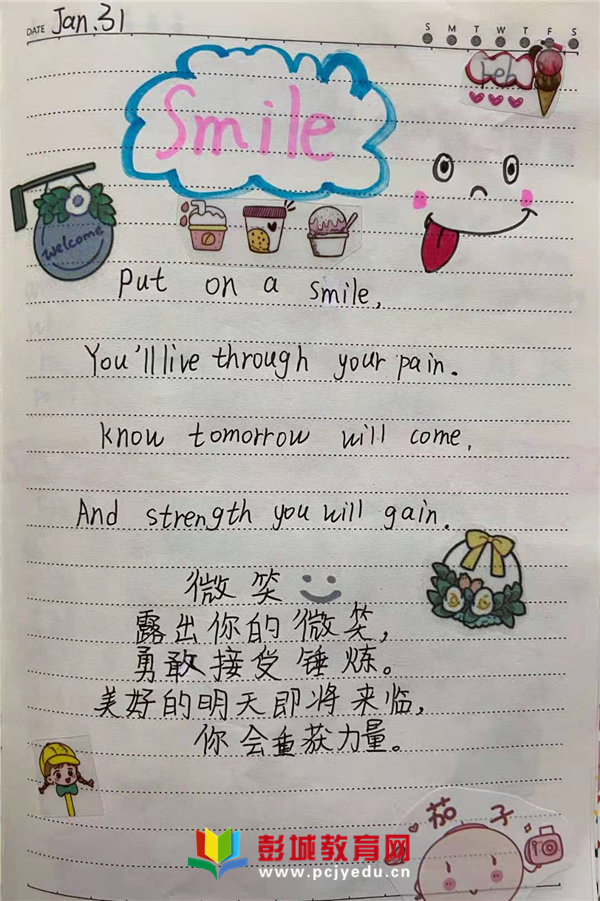 DATE Jan.31
S M T W T F S
Smile
welcome
Put on a smile,
You'll live through your pain.
Know tomorrow will come,
And strength you will gain.
微笑
露出你的微笑,
勇敢接受锤炼。
美好的明天即将来临,
你会重获力量。
茄子
彭城教育网
www.pcjyedu.cn